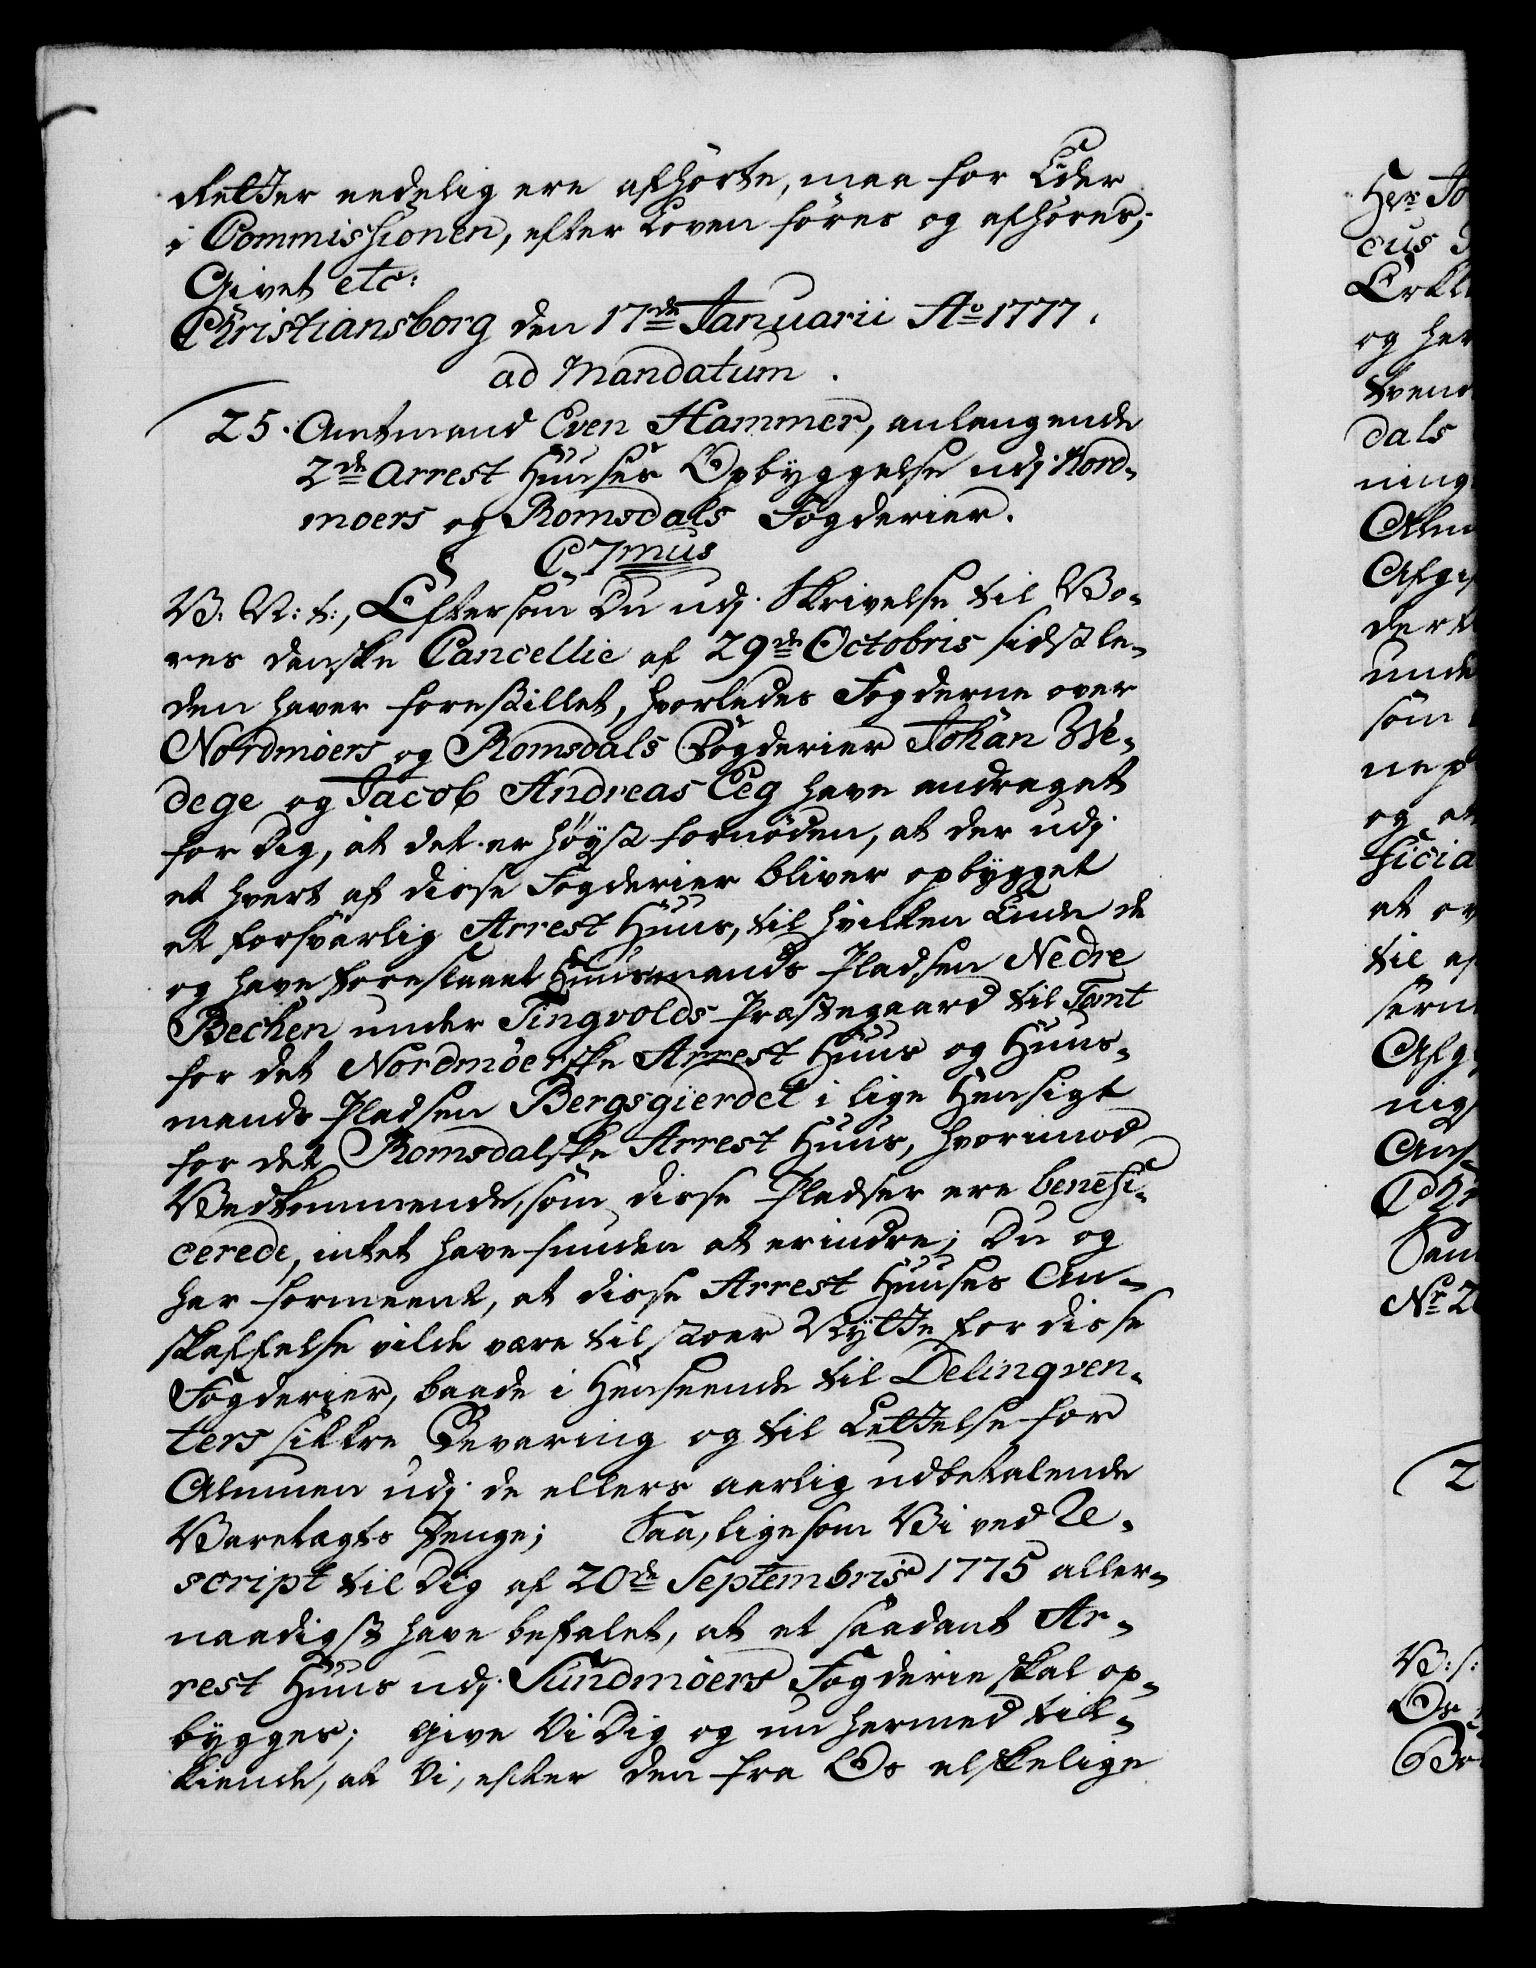 Retter eedelig ere afhörte, maa for Eder
i Commissionen, efter Loven föres og afhöres;
Givet etc:
Christiansborg den 17de Januarii Ao 1777.
ad Mandatum.
25. Amtmand Even Hammer, anlangende
2de Arrest Huuses Opbyggelse udj Nord-
möers og Romsdals Fogderier.
C 7mus
V. V: t:, Eftersom Du udj Skrivelse til Vo-
res danske Cancellie af 29de Octobris sidstle-
den haver forestillet, hvorledes Fogderne over
Nordmöers og Romsdals Fogderier Johan We-
dege og Jacob Andreas Eeg have andraget
for Dig, at det er höyst fornöden, at der udj
et hvert af disse Fogderier bliver opbygget
et forsvarlig Arrest Huus, til hvilken Ende de
og have foreslaaet Huusmands Pladsen Nedre
Bechen under Tingvolds Præstegaard til Tomt
for det Nordmöerske Arrest Huus og Huus-
mands Pladsen Bergsgierdet i lige Hensigt
for det Romsdalske Arrest Huus, hvorimod
Vedkommende, som disse Pladser ere benefi-
cerede, intet have funden at erindre; Du og
har formeent, at disse Arrest Huuses An-
skaffelse vilde være til stoer Nytte for disse
Fogderier, baade i Henseende til Delinqven-
ters sikkre Bevaring og til Lettelse for
Almuen udj de ellers aarlig udbetalende
Varetægts Penge; Saa, ligesom Vi ved Re-
script til Dig af 20de Septembris 1775 aller-
naadigst have befalet, at et saadant Ar-
rest Huus udj Sundmöers Fogderie skal op-
bygges; give Vi Dig og nu hermed tilk-
kiende, at Vi, efter den fra Os elskelige